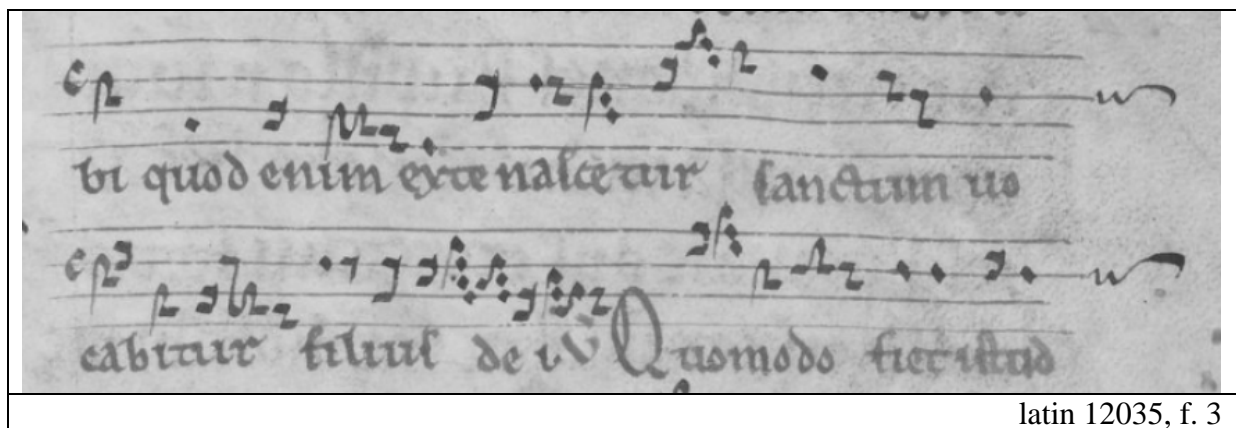 bi quod enim exte nascetur sanctum uo
cabitur filius dei. V Quomodo fiet istud
latin 12035, f. 3